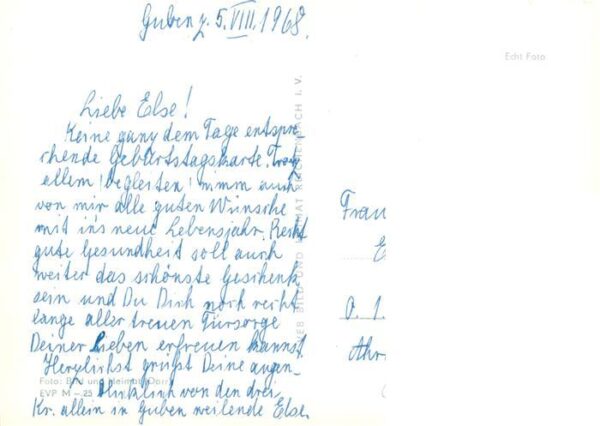 Guben z. 5. VIII. 1968.
Echt Foto
Liebe Else!
Keine ganz dem Tage entspre
chende Geburtstagskarte. Trotz
ellem (begleiten) nimm auch
von mir alle guten Wünsche
mit ins neue Lebensjahr. Recht
gute Gesundheit soll auch
weiter das schönste Geschenk
sein und Du Dich noch recht
lange aller treuen Fürsorge
Deiner Lieben erfreuen kannst.
Herzlichst grüßt Deine augen-
blicklich von den drei
Kr. allein in Guben weilende Else.
BILD UND HEIMAT REICHENBACH I. V.
Foto: Bild und Heimat
EVP M –.25
Frau
E
0. 1
Ahr